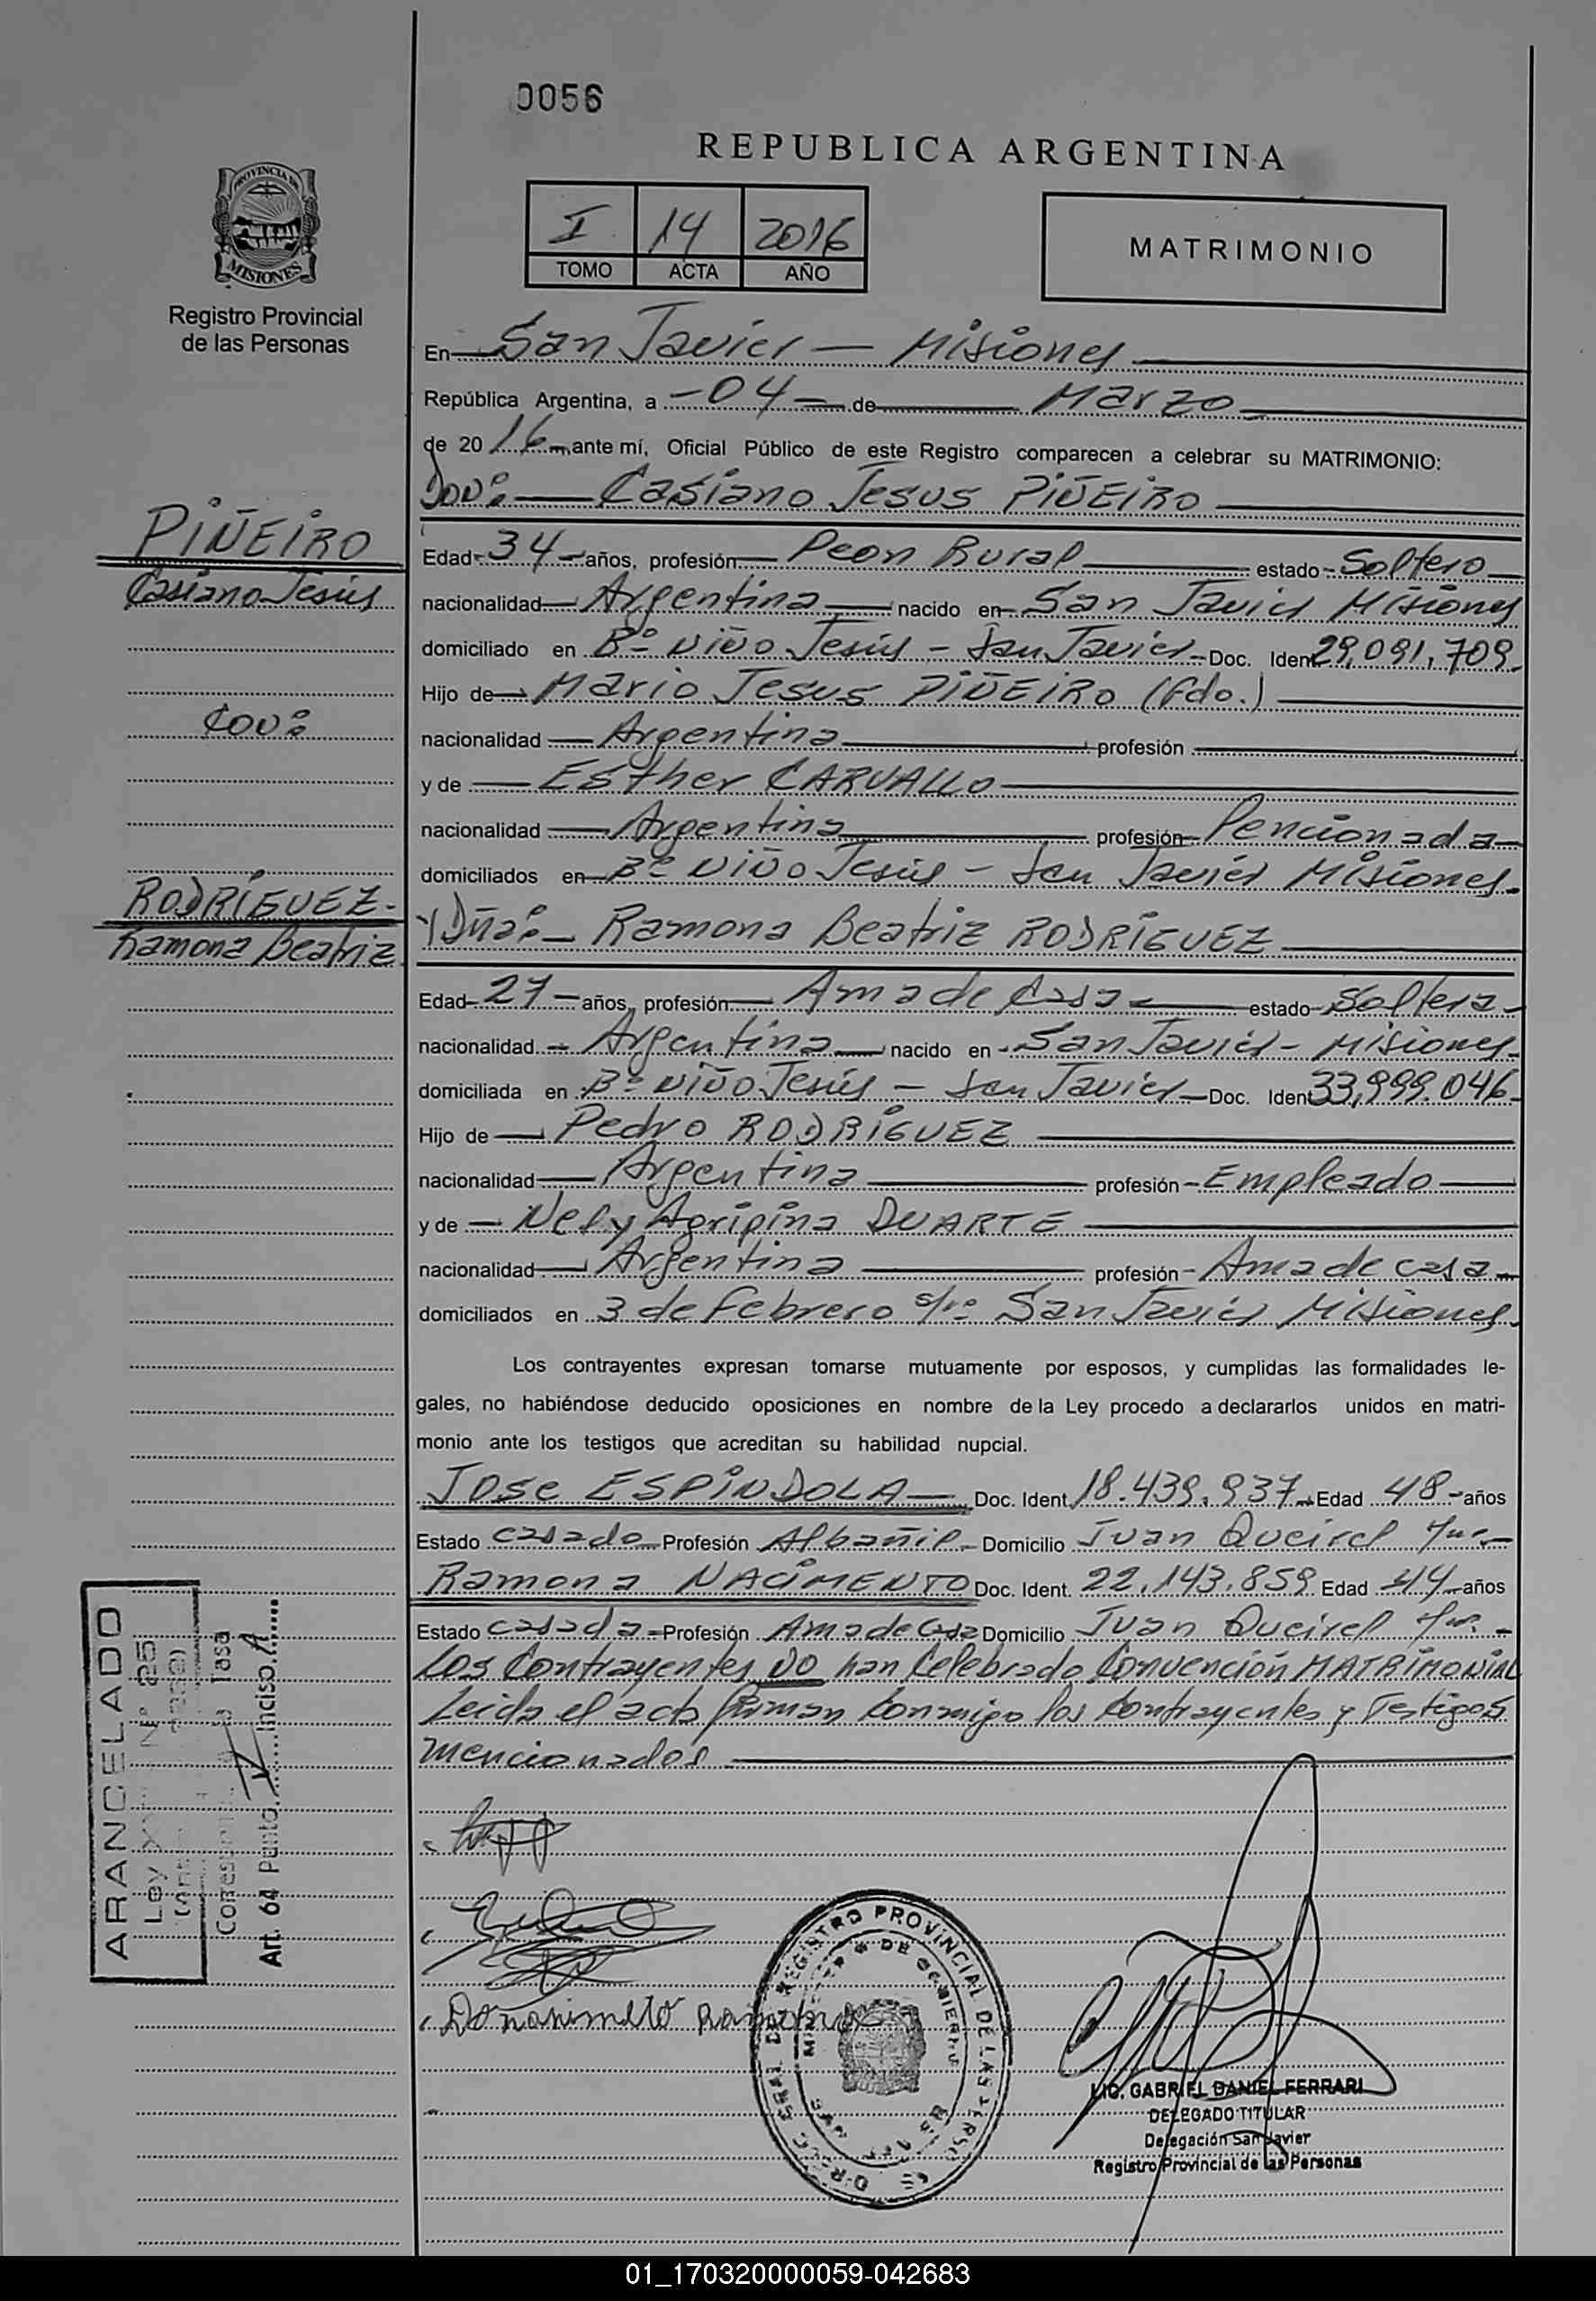 0056
REPUBLICA ARGENTINA
PROVINCIA DE
MISIONES
Registro Provincial
de las Personas
I 14 2016
TOMO ACTA AÑO
MATRIMONIO
En San Javier — Misiones
República Argentina, a -04- de Marzo
de 2016 ante mí, Oficial Público de este Registro comparecen a celebrar su MATRIMONIO:
Don: Casiano Jesus PIÑEIRO
PIÑEIRO
Edad 34 años, profesión Peon Rural estado Soltero
Casiano Jesús
nacionalidad Argentina nacido en San Javier Misiones
domiciliado en Bº Niño Jesús - San Javier Doc. Ident 29.091.709
Hijo de Mario Jesus PIÑEIRO (Fdo.)
Con:
nacionalidad Argentina profesión
y de Esther CARVALLO
nacionalidad Argentina profesión Pencionada
domiciliados en Bº Niño Jesús - San Javier Misiones.
RODRÍGUEZ
Y Dña: Ramona Beatriz RODRÍGUEZ
Ramona Beatriz
Edad 27 años, profesión Ama de Casa estado Soltera
nacionalidad Argentina nacido en San Javier - Misiones
domiciliada en Bº Niño Jesús - San Javier Doc. Ident 33.999.046
Hijo de Pedro RODRÍGUEZ
nacionalidad Argentina profesión Empleado
y de Nely Agripina DUARTE
nacionalidad Argentina profesión Ama de casa
domiciliados en 3 de Febrero s/nº San Javier Misiones.
Los contrayentes expresan tomarse mutuamente por esposos, y cumplidas las formalidades le-
gales, no habiéndose deducido oposiciones en nombre de la Ley procedo a declararlos unidos en matri-
monio ante los testigos que acreditan su habilidad nupcial.
Jose ESPINDOLA Doc. Ident 18.439.937 Edad 48 años
Estado casado Profesión Albañil Domicilio Juan Queirel
Ramona NACIMENTO Doc. Ident. 22.143.859 Edad 44 años
Estado casada Profesión Ama de Casa Domicilio Juan Queirel
Los Contrayentes NO han Celebrado Convención MATRIMONIAL
Leida el acta firman conmigo los Contrayentes y Testigos
mencionados
ARANCELADO
Ley Nº 825
Tasa
Art. 64 Punto IV Inciso A
Ramona
REGISTRO PROVINCIAL DE LAS PERSONAS
LIC. GABRIEL DANIEL FERRARI
DELEGADO TITULAR
Delegación San Javier
Registro Provincial de las Personas
01_170320000059-042683